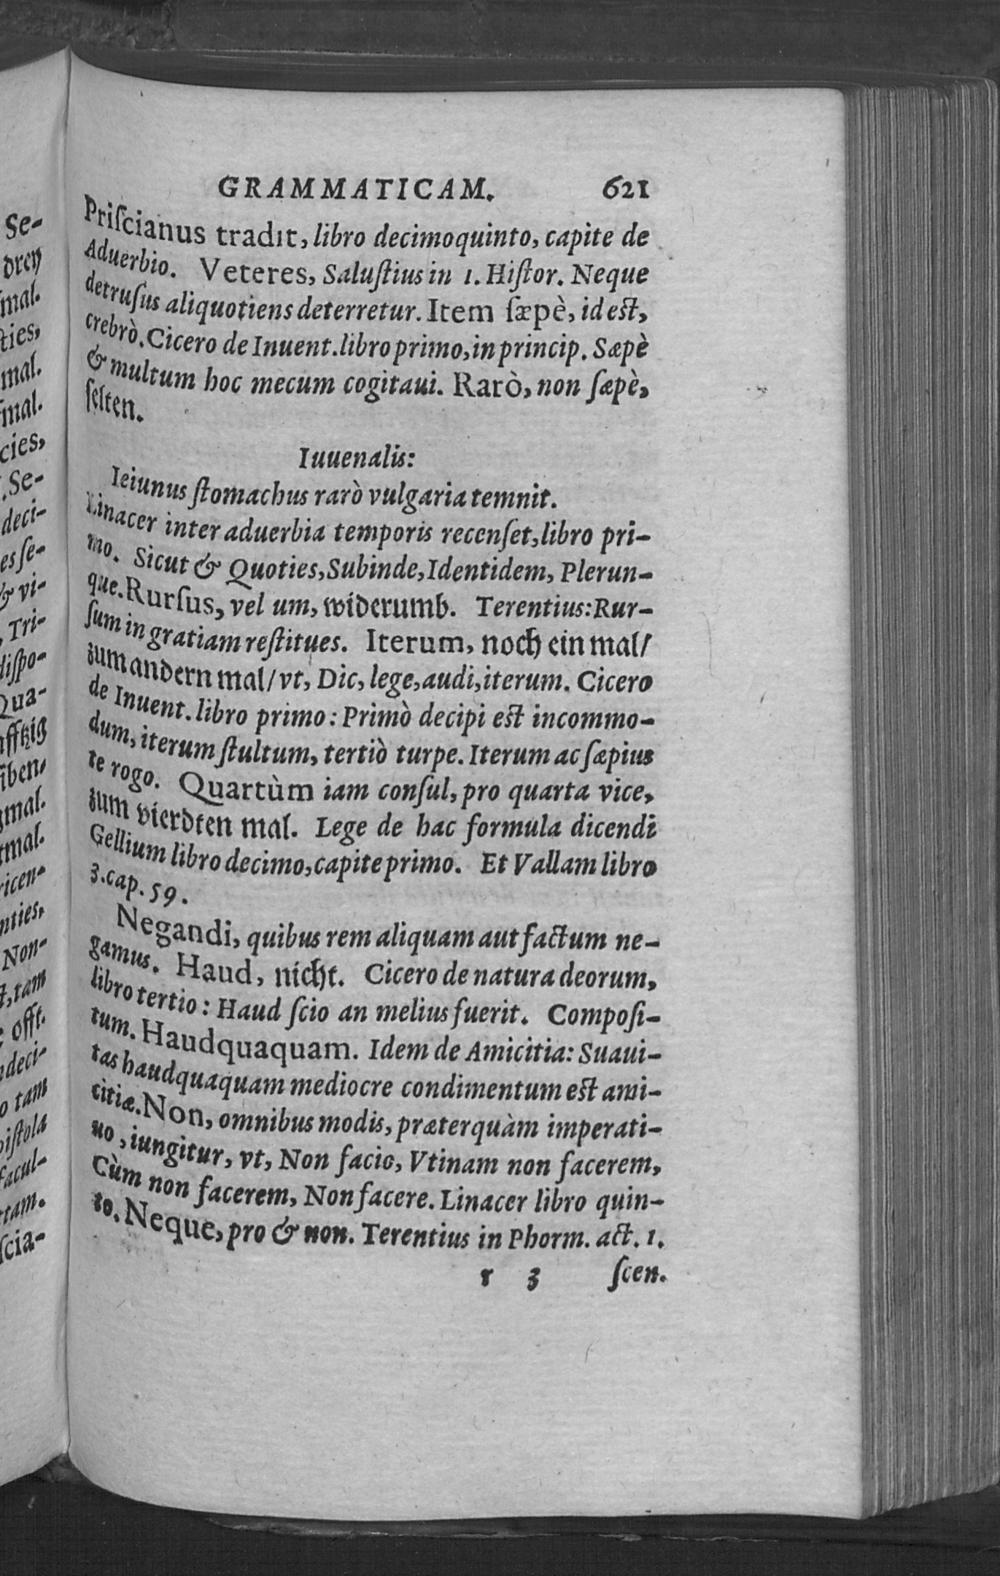 GRAMMATICAM. 621
Priſcianus tradit, libro decimoquinto, capite de
Aduerbio. Veteres, Saluſtius in 1. Hiſtor. Neque
detruſus aliquotiens deterretur. Item ſæpè, id eſt,
crebrò. Cicero de Inuent. libro primo, in princip. Sæpè
& multum hoc mecum cogitaui. Rarò, non ſæpè,
ſelten.
Iuuenalis:
Ieiunus ſtomachus rarò vulgaria temnit.
Linacer inter aduerbia temporis recenſet, libro pri-
mo. Sicut & Quoties, Subinde, Identidem, Plerun-
que. Rurſus, vel um, widerumb. Terentius: Rur-
ſum in gratiam reſtitues. Iterum, noch ein mal/
zum andern mal/ vt, Dic, lege, audi, iterum. Cicero
de Inuent. libro primo: Primò decipi eſt incommo-
dum, iterum ſtultum, tertiò turpe. Iterum ac ſæpius
te rogo. Quartùm iam conſul, pro quarta vice,
zum vierdten mal. Lege de hac formula dicendi
Gellium libro decimo, capite primo. Et Vallam libro
3. cap. 59.
Negandi, quibus rem aliquam aut factum ne-
gamus. Haud, nicht. Cicero de natura deorum,
libro tertio: Haud ſcio an melius fuerit. Compoſi-
tum. Haudquaquam. Idem de Amicitia: Suaui-
tas haudquaquam mediocre condimentum eſt ami-
citiæ. Non, omnibus modis, præterquàm imperati-
uo, iungitur, vt, Non facio, Vtinam non facerem,
Cùm non facerem, Non facere. Linacer libro quin-
to. Neque, pro & non. Terentius in Phorm. act. 1.
r 3 ſcen.
Se-
drey
mal.
ties,
mal.
mal.
cies,
Se-
deci-
es ſe-
& vi-
Tri-
diſpo-
Qua-
mal.
mal.
Non-
tam
offt.
deci-
o tam
piſtola
facul-
ſcia-